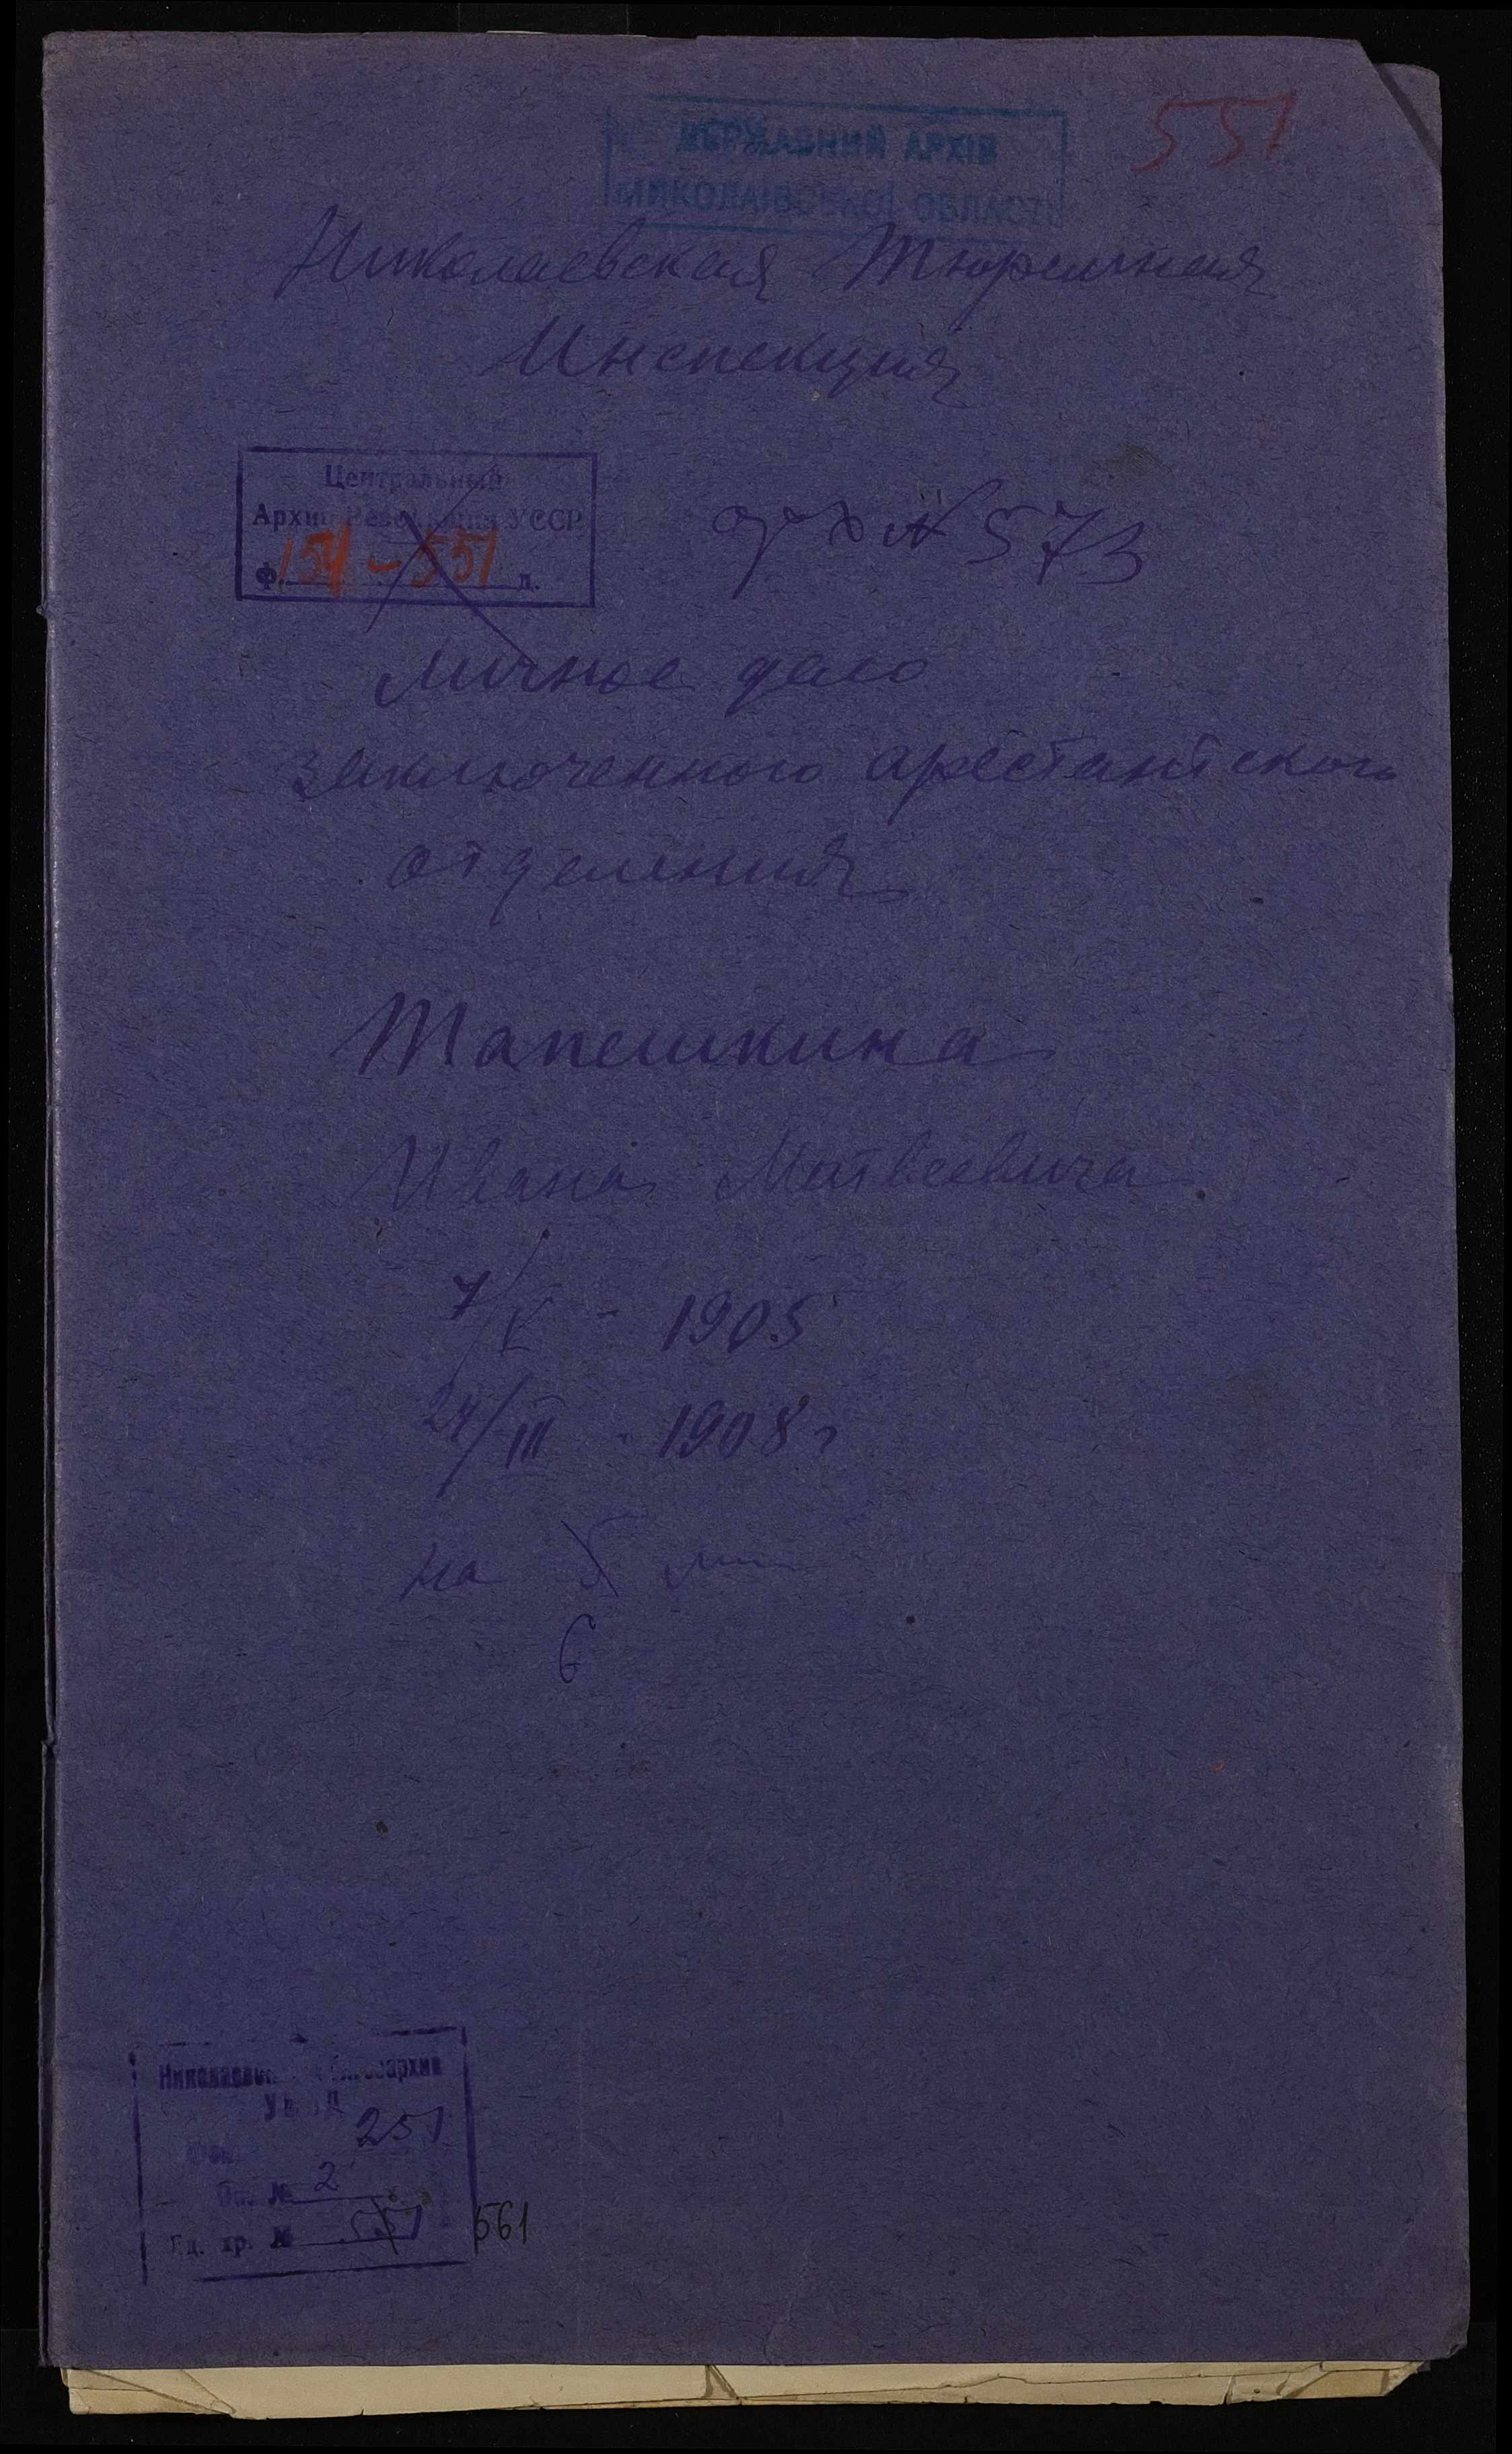 551
ДЕРЖАВНИЙ АРХІВ
МИКОЛАЇВСЬКОЇ ОБЛАСТІ
Николаевская Тюремная
Инспекция
Центральный
Архив Революции УССР
Ф. 154 - 551 д.
арх № 573
Личное дело
заключенного арестантского
отделения
Тапешкина
Ивана Матвеевича
7/V - 1905
24/III - 1908 г
на 5
6
251
Оп. № 2
Ед. хр. № 551 561